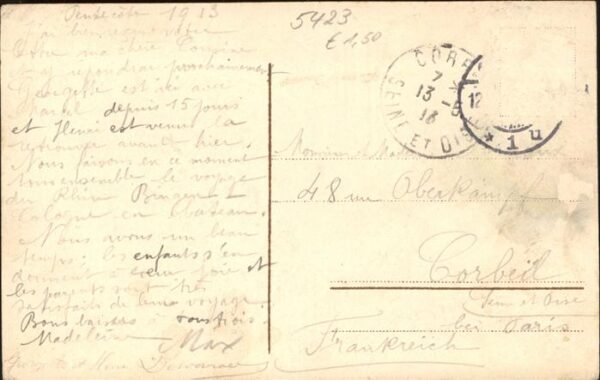 Pentecôte 1913
J'ai bien reçu votre
lettre ma chère Cousine
et y répondrai prochainement
Georgette est ici avec
Marcel depuis 15 jours
et Henri est venu la
retrouver avant hier.
Nous faisons en ce moment
tous ensemble le voyage
du Rhin Bingen
Cologne en bateau.
Nous avons un beau
temps: les enfants s'en
donnent à cœur joie et
les parents sont très
satisfaits de leur voyage
Bons baisers à tous trois.
Madeleine Max
5423
€ 1,50
CORBEIL
7
13-5
13
SEINE ET OISE
12
* 1 u
Monsieur et Madame
48 rue Oberkampf
Corbeil
Seine et Oise
bei Paris
Frankreich